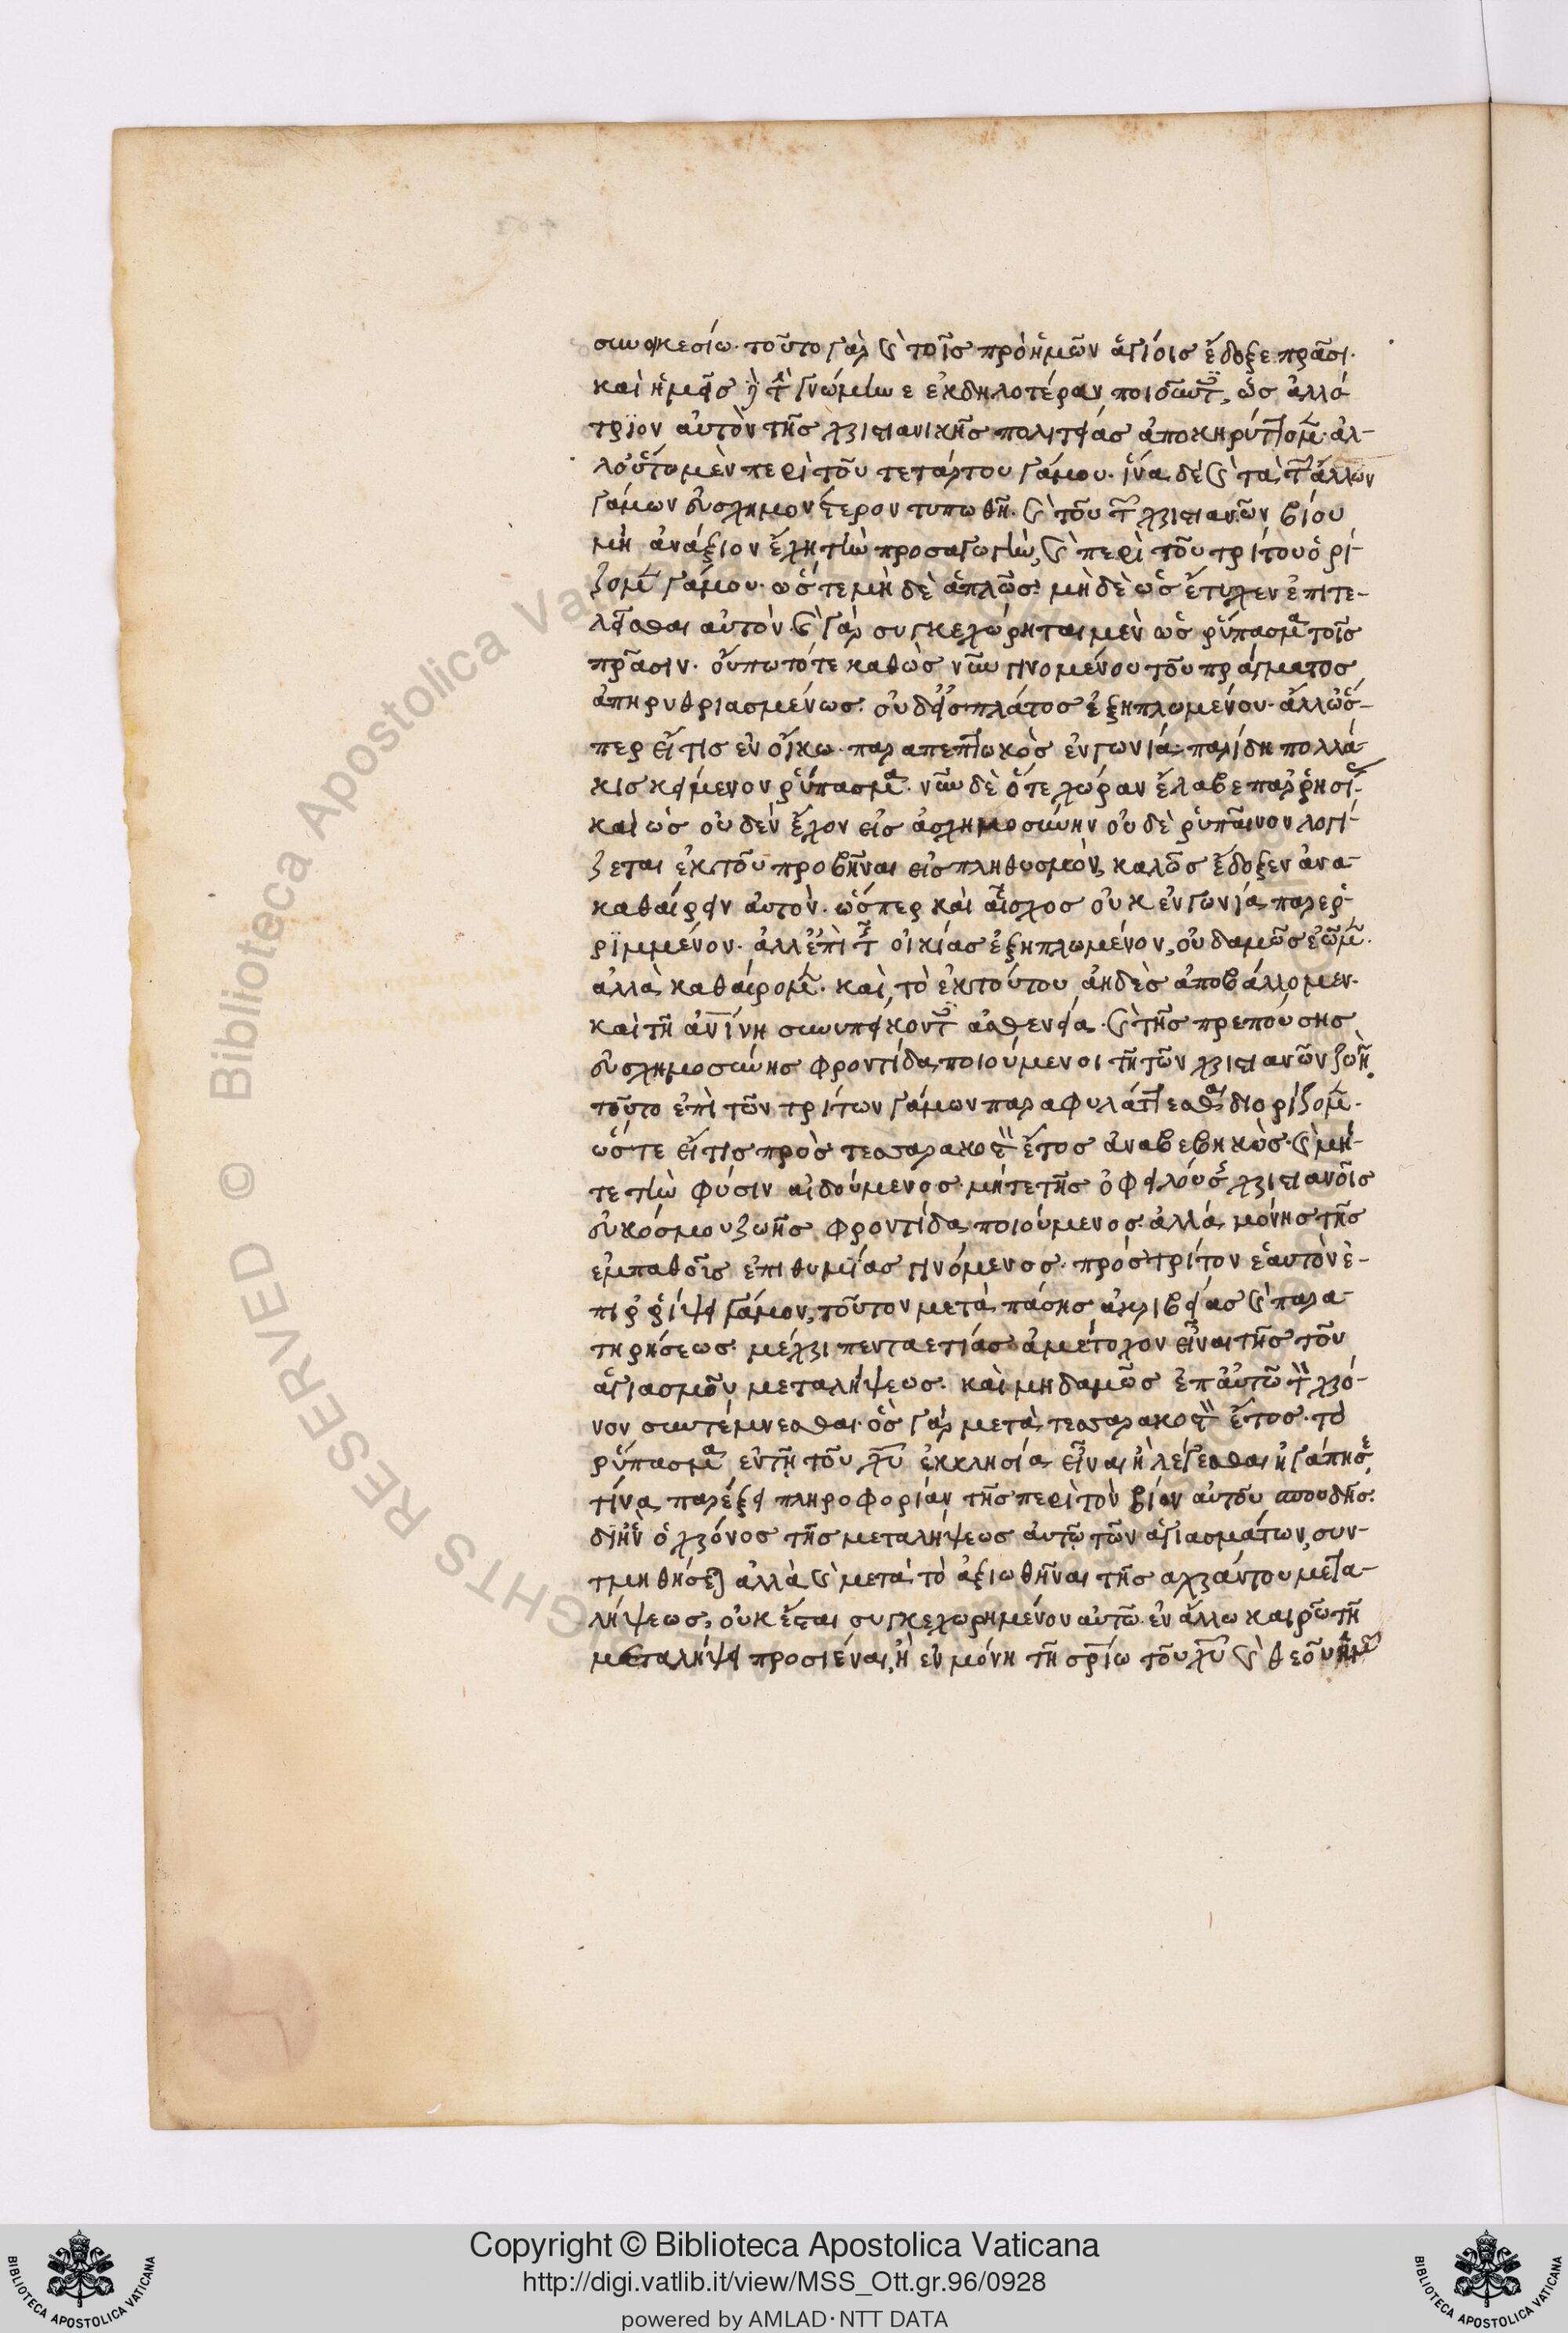 συνοικεσίω. τοῦτο γὰρ καὶ τοῖς πρὸ ἡμῶν ἁγίοις ἔδοξε πρᾶσι.
καὶ ἡμεῖς τὴν γνώμην ἐκδηλοτέραν ποιοῦντες, ὡς ἀλλό
τριον αὐτὸν τῆς χριστιανικῆς πολιτείας ἀποκηρύττομεν. ἀλ-
λ' οὕτω μὲν περὶ τοῦ τετάρτου γάμου. ἵνα δὲ καὶ τὰ τῶν ἄλλων
γάμων εὐσχημονέστερον τυπωθῆ. καὶ τοῦ τῶν χριστιανῶν βίου
μὴ ἀνάξιον ἔχη τὴν προσαγωγὴν, καὶ περὶ τοῦ τρίτου ὁρί-
ζομεν γάμου. ὥστε μὴ δὲ ἁπλῶς. μὴ δὲ ὡς ἔτυχεν ἐπιτε-
λεῖσθαι αὐτόν. καὶ γὰρ συγκεχώρηται μὲν ὡς ῥύπασμα τοῖς
πρᾶσιν. οὔπω τότε καθὼς νῦν γινομένου τοῦ πράγματος
ἀπηρυθριασμένως. οὐδ' εἰς πλάτος ἐξηπλωμένου. ἀλλ' ὥσ-
περ εἴ τις ἐν οἴκω. παραπεπτωκὸς ἐν γωνία παρίδη πολλά-
κις κείμενον ῥύπασμα. νῦν δὲ ὅτε χώραν ἔλαβε παρρησίας
καὶ ὡς οὐδὲν ἔχον εἰς ἀσχημοσύνην οὐδὲ ῥυπαῖνον λογί-
ζεται ἐκ τοῦ προβῆναι εἰς πληθυσμὸν, καλῶς ἔδοξεν ἀνα-
καθαίρειν αὐτόν. ὥσπερ καὶ αἶσχος οὐκ ἐν γωνία παρερ-
ριμμένον. ἀλλ' ἐπὶ τῆς οἰκίας ἐξηπλωμένον, οὐδαμῶς ἐῶμεν.
ἀλλὰ καθαίρομεν. καὶ τὸ ἐκ τούτου ἀηδὲς ἀποβάλλομεν.
καὶ τῆ ἀνίνη συνυπείκοντες ἀσθενεία. καὶ τῆς πρεπούσης
εὐσχημοσύνης φροντίδα ποιούμενοι τῆ τῶν χριστιανῶν ζωῆ.
τοῦτο ἐπὶ τῶν τρίτων γάμων παραφυλάττεσθαι διορίζομεν.
ὥστε εἴ τις πρὸς τεσσαρακοστὸν ἔτος ἀναβεβηκὼς. καὶ μή-
τε τὴν φύσιν αἰδούμενος μήτε τῆς ὀφειλούσης χριστιανοῖς
εὐκόσμου ζωῆς φροντίδα ποιούμενος. ἀλλὰ μόνης τῆς
ἐμπαθοῦς ἐπιθυμίας γινόμενος. πρὸς τρίτον ἑαυτὸν ἐ-
πιρρίψει γάμον, τοῦτον μετὰ πάσης ἀκριβείας καὶ παρα-
τηρήσεως. μέχρι πενταετίας ἀμέτοχον εἶναι τῆς τοῦ
ἁγιασμοῦ μεταλήψεως. καὶ μηδαμῶς ἐπ' αὐτῶ τὸν χρό-
νον συντέμνεσθαι. ὃς γὰρ μετὰ τεσσαρακοστὸν ἔτος. τὸ
ῥύπασμα ἐν τῆ τοῦ χυ ἐκκλησία εἶναι ἢ λέγεσθαι ἠγάπησε,
τίνα παρέξει πληροφορίαν τῆς περὶ τὸν βίον αὐτοῦ σπουδῆς.
δι' ἣν ὁ χρόνος τῆς μεταλήψεως αὐτῶ τῶν ἁγιασμάτων, συν-
τμηθήσεται ἀλλὰ καὶ μετὰ τὸ ἀξιωθῆναι τῆς ἀχράντου μετα-
λήψεως, οὐκ ἔσται συγκεχωρημένον αὐτῶ ἐν ἄλλω καιρῶ τῆ
μεταλήψει προσιέναι, ἢ ἐν μόνη τῆ σρίω τοῦ χυ καὶ θεοῦ ἡμῶν
Copyright © Biblioteca Apostolica Vaticana
http://digi.vatlib.it/view/MSS_Ott.gr.96/0928
powered by AMLAD·NTT DATA